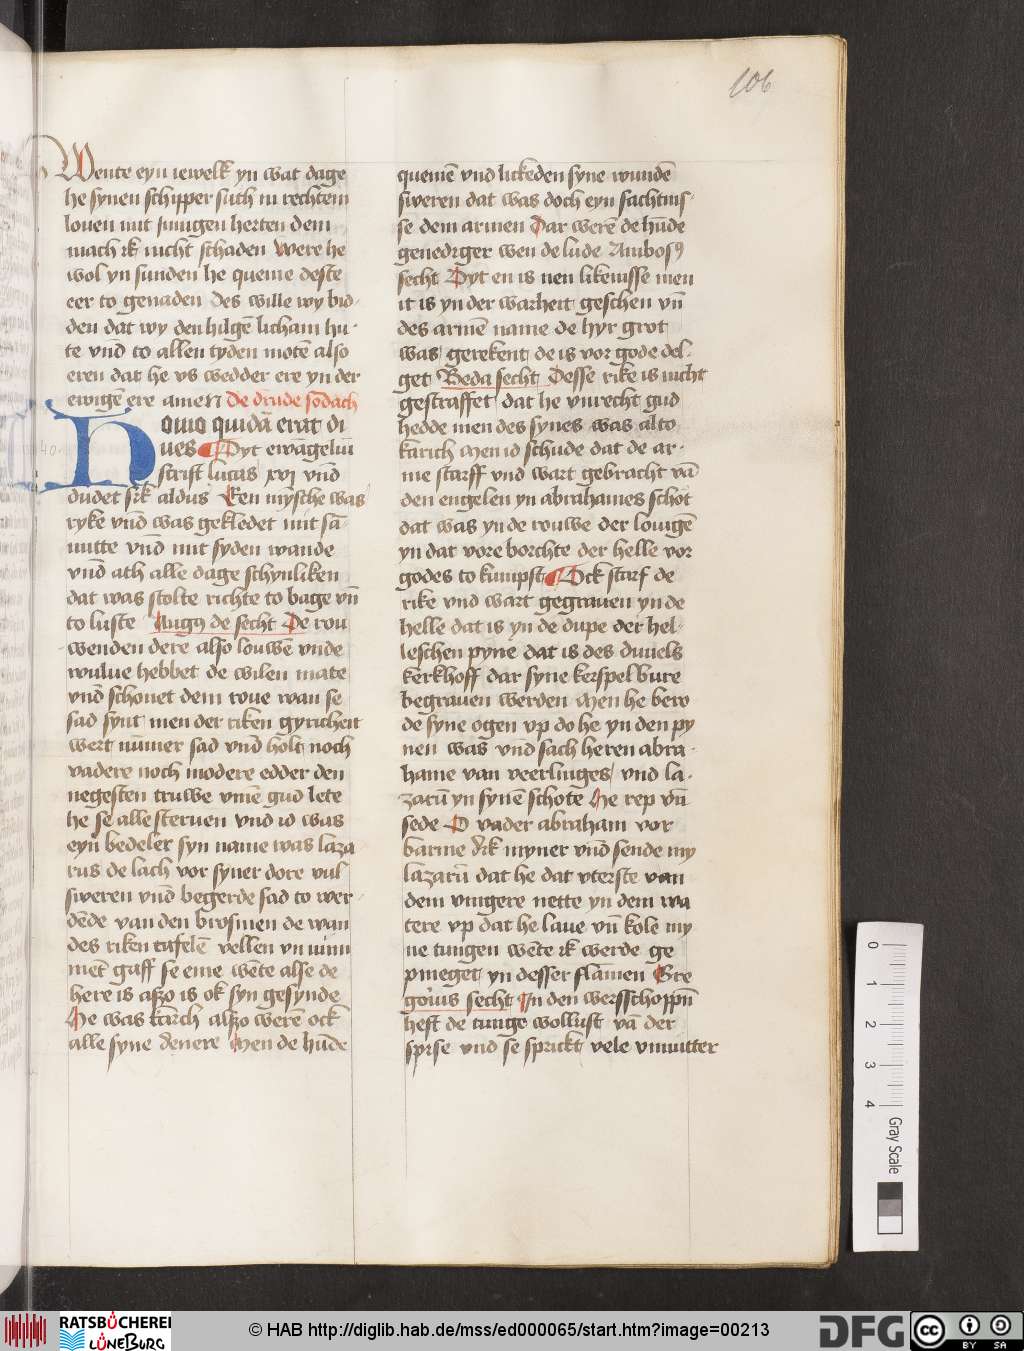 106
Wente eyn iewelk yn wat dage
he synen schipper suth in rechtem
louen mit innigen herten dem
mach ik nicht schaden Were he
wol yn sunden he queme deste
eer to genaden Des wille wy bid-
den dat wy den hilgē licham hu-
te vn̄d to allen tyden motē also
eren dat he vs wedder ere yn der
ewigē ere amen De drudde sōdach
Omo quidā erat di
ues Dyt ewāgeliū
scrift lucas xvj vn̄d
dudet sik aldus Een mysche was
ryke vn̄d was gekledet mit sā-
mitte vn̄d mit syden wande
vn̄d ath alle dage schynliken
dat was stolte richte to bage vn̄
to luste Augꝰ de secht De rou
wenden dere also louwē vnde
wulue hebbet de wilen mate
vn̄d schonet dem roue wan se
sad synt men der riken gyricheit
wert nūmer sad vn̄d holt noch
vadere noch modere edder den
negesten truwe vmē gud lete
he se alle steruen vnd id was
eyn bedeler syn name was laza
rus de lach vor syner dore vul
sweren vn̄d begerde sad to wer
dēde van den brosmen de van
des riken tafelē vellen vn nim
met gaff se eme wēte alse de
here is alzo is ok syn gesynde
He was karich alzo werē ock
alle syne denere Men de hūde
quemē vnd lickeden syne wundē
sweren dat was doch eyn sachtnis-
se dem armen Dar werē de hūde
genediger wen de lude Ambosꝰ
secht Dyt en is nen likenisse men
it is yn der warheit geschen vn̄
des armē name de hyr grot
was gerekent de is vor gode del-
get Beda secht Desse rike is nicht
gestraffet dat he vnrecht gud
hedde men des synes was alto
karich Men id schude dat de ar-
me starff vnd wart gebracht vā
den engelen yn abrahames schot
dat was yn de rouwe der louigē
yn dat vore borchte der helle vor
godes to kumpst Ock starf de
rike vnd wart gegrauen yn de
helle dat is yn de dupe der hel-
leschen pyne dat is des duuels
kerkhoff dar syne kerspel bure
begrauen werden Men he boro
de syne ogen vp do he yn den py
nen was vn̄d sach heren abra-
hame van veerlinges vnd la-
zarū yn synē schote He rep vn̄
sede O vader abraham vor
barme dik myner vn̄d sende my
lazarū dat he dat vterste van
dem vingere nette yn dem wa
tere vp dat he laue vn̄ kole my
ne tungen wēte ik werde ge
pineget yn desser flāmen Gre
goriis secht In den wersschoppn̄
heft de tunge wollust vā der
spise vnd se sprickt vele vnnutter
0
1
2
3
4
Gray Scale
RATSBÜCHEREI
LÜNEBURG
© HAB http://diglib.hab.de/mss/ed000065/start.htm?image=00213
DFG
cc
BY
SA